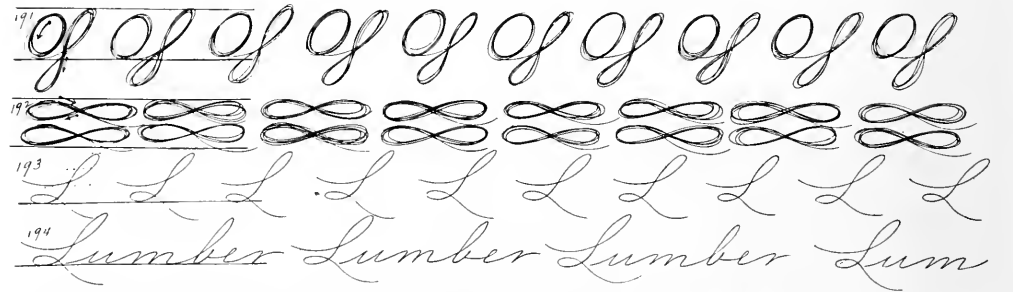 191
192
193 L L L L L L L L L L
194 Lumber Lumber Lumber Lum